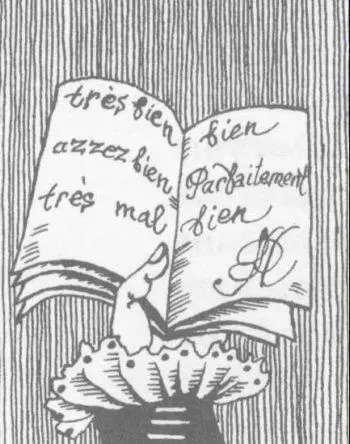 très bien
azzez bien
très mal
bien
Parfaitement
bien